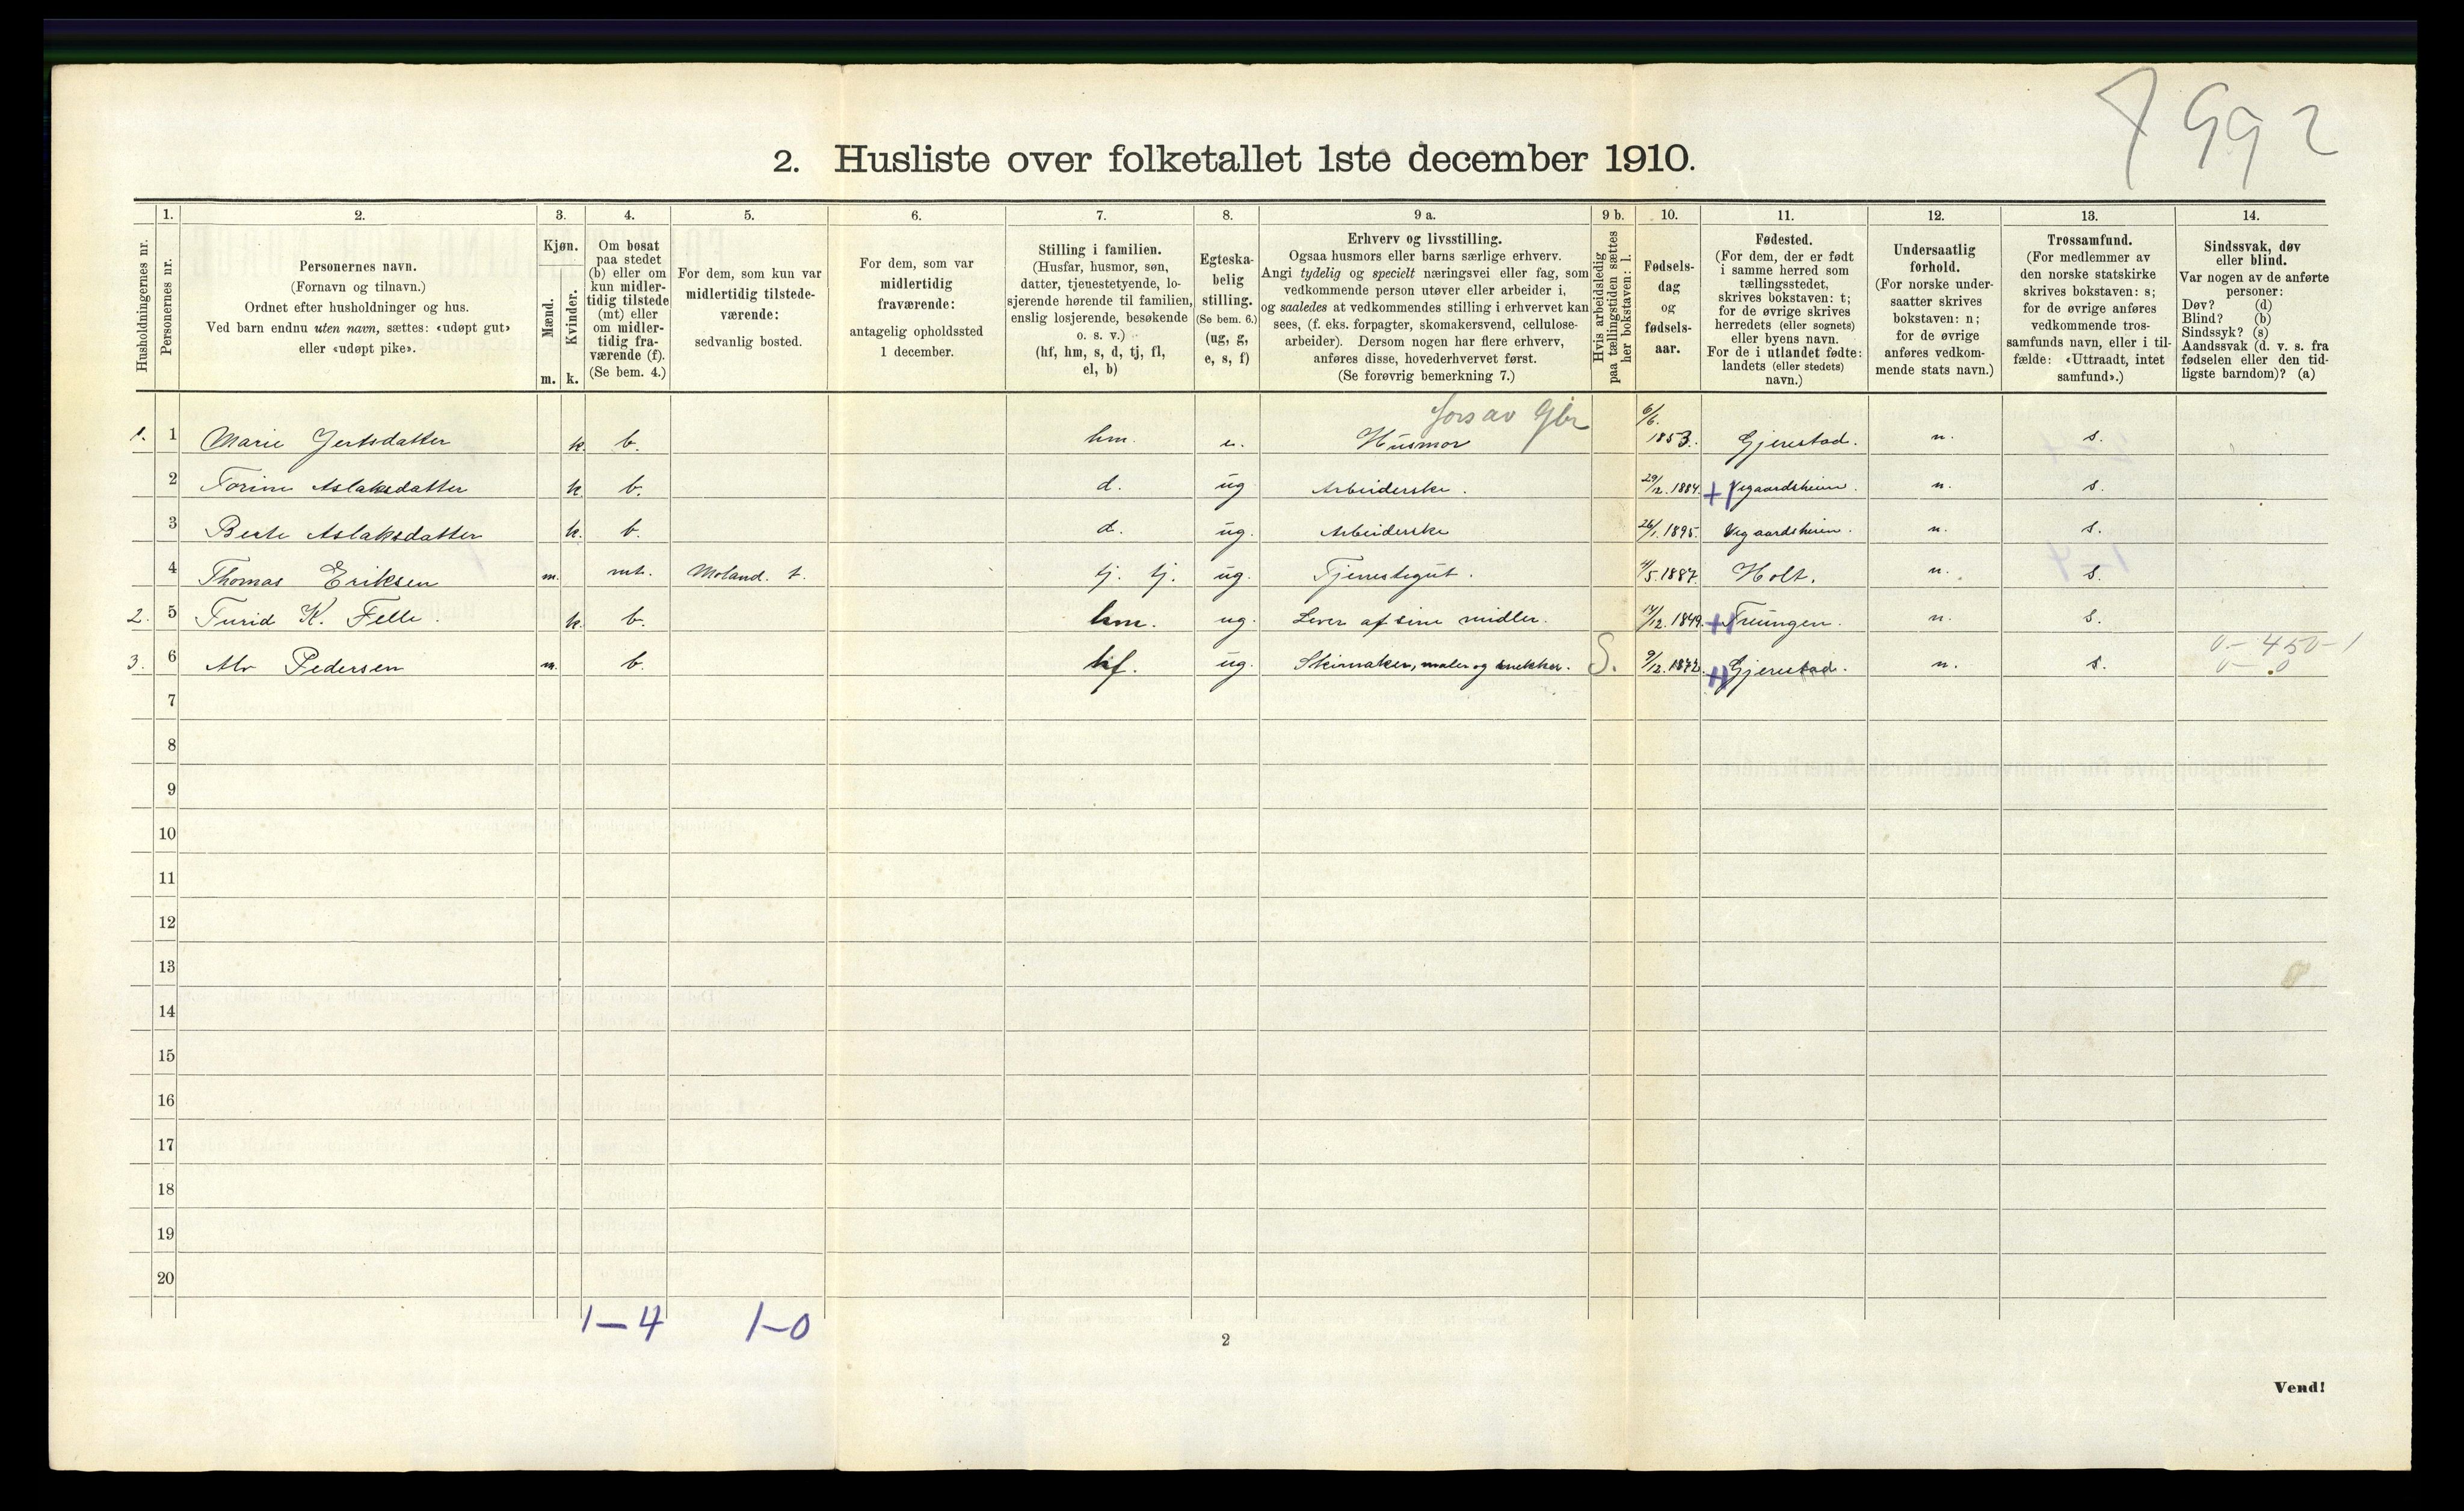 7 992
2. Husliste over folketallet 1ste december 1910.
1. 2. 3. 4. 5. 6. 7. 8. 9 a. 9 b. 10. 11. 12. 13. 14.
Husholdningernes nr.
Personernes nr.
Personernes navn.
(Fornavn og tilnavn.)
Ordnet efter husholdninger og hus.
Ved barn endnu uten navn, sættes: «udøpt gut»
eller «udøpt pike».
Kjøn.
Mænd.
Kvinder.
m. k.
Om bosat
paa stedet
(b) eller om
kun midler-
tidig tilstede
(mt) eller
om midler-
tidig fra-
værende (f).
(Se bem. 4.)
For dem, som kun var
midlertidig tilstede-
værende:
sedvanlig bosted.
For dem, som var
midlertidig
fraværende:
antagelig opholdssted
1 december.
Stilling i familien.
(Husfar, husmor, søn,
datter, tjenestetyende, lo-
sjerende hørende til familien,
enslig losjerende, besøkende
o. s. v.)
(hf, hm, s, d, tj, fl,
el, b)
Egteska-
belig
stilling.
(Se bem. 6.)
(ug, g,
e, s, f)
Erhverv og livsstilling.
Ogsaa husmors eller barns særlige erhverv.
Angi tydelig og specielt næringsvei eller fag, som
vedkommende person utøver eller arbeider i,
og saaledes at vedkommendes stilling i erhvervet kan
sees, (f. eks. forpagter, skomakersvend, cellulose-
arbeider). Dersom nogen har flere erhverv,
anføres disse, hovederhvervet først.
(Se forøvrig bemerkning 7.)
Hvis arbeidsledig
paa tællingstiden sættes
her bokstaven: l.
Fødsels-
dag
og
fødsels-
aar.
Fødested.
(For dem, der er født
i samme herred som
tællingsstedet,
skrives bokstaven: t;
for de øvrige skrives
herredets (eller sognets)
eller byens navn.
For de i utlandet fødte:
landets (eller stedets)
navn.)
Undersaatlig
forhold.
(For norske under-
saatter skrives
bokstaven: n;
for de øvrige
anføres vedkom-
mende stats navn.)
Trossamfund.
(For medlemmer av
den norske statskirke
skrives bokstaven: s;
for de øvrige anføres
vedkommende tros-
samfunds navn, eller i til-
fælde: «Uttraadt, intet
samfund».)
Sindssvak, døv
eller blind.
Var nogen av de anførte
personer:
Døv? (d)
Blind? (b)
Sindssyk? (s)
Aandssvak (d. v. s. fra
fødselen eller den tid-
ligste barndom)? (a)
fors av Gbr
1. 1 Marie Jertsdatter k. b. hm. e. Husmor 6/6. 1853. Gjerestad. n. s.
2 Torine Aslaksdatter k. b. d. ug Arbeiderske. 29/12. 1884. Vegaardsheien. n. s.
3 Berte Aslaksdatter k. b. d. ug. Arbeiderske 26/1. 1895. Vegaardsheien. n. s.
4 Thomas Eriksen m. mt. Moland. t. tj. tj. ug. Tjenestegut. 4/5. 1887. Holt. n. s.
2. 5 Turid K. Felle. k. b. hm. ug. Lever af sine midler. 14/12. 1849. Treungen. n. s.
0-450-1
3. 6 Alv Pedersen m. b. hf. ug. Skimaker, maler og snekker. S. 9/12. 1872. Gjerestad. n. s. 0-0
7
8
9
10
11
12
13
14
15
16
17
18
19
20
1-4 1-0
2
Vend!